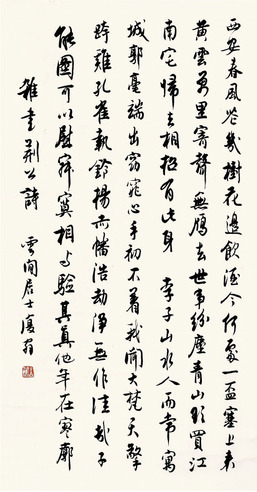 西安春風花幾樹花邊飲酒今何處一盃塞上看
黃雲萬里寄聲無鴈去世事紛塵青山欲買江
南宅歸去相招有此身 李子山水人而常寓
城郭毫端出窈窕心手初不着我聞大梵天擎
跨雞孔雀執鈴揚赤幡浩劫淨無作佳哉子
能圖可以慰寂寞相与驗其真他年在寥廓
雜書荊公詩 雲間居士